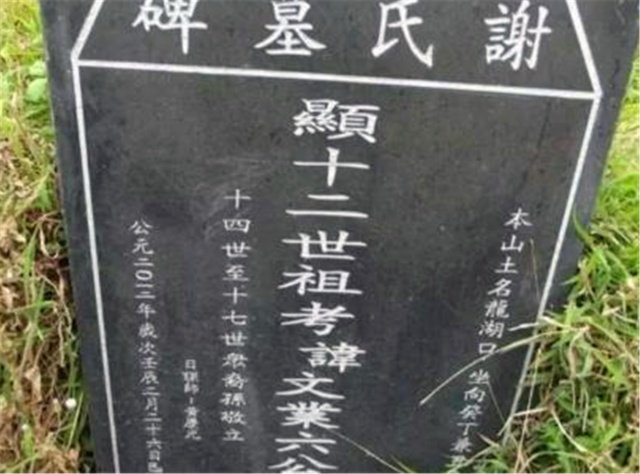 謝氏墓碑
本山土名龍湖口坐向癸丁兼
顯十二世祖考諱文業六公
十四世至十七世眾裔孫敬立
日課師:黃慶元
公元二〇一二年歲次壬辰二月二十六日